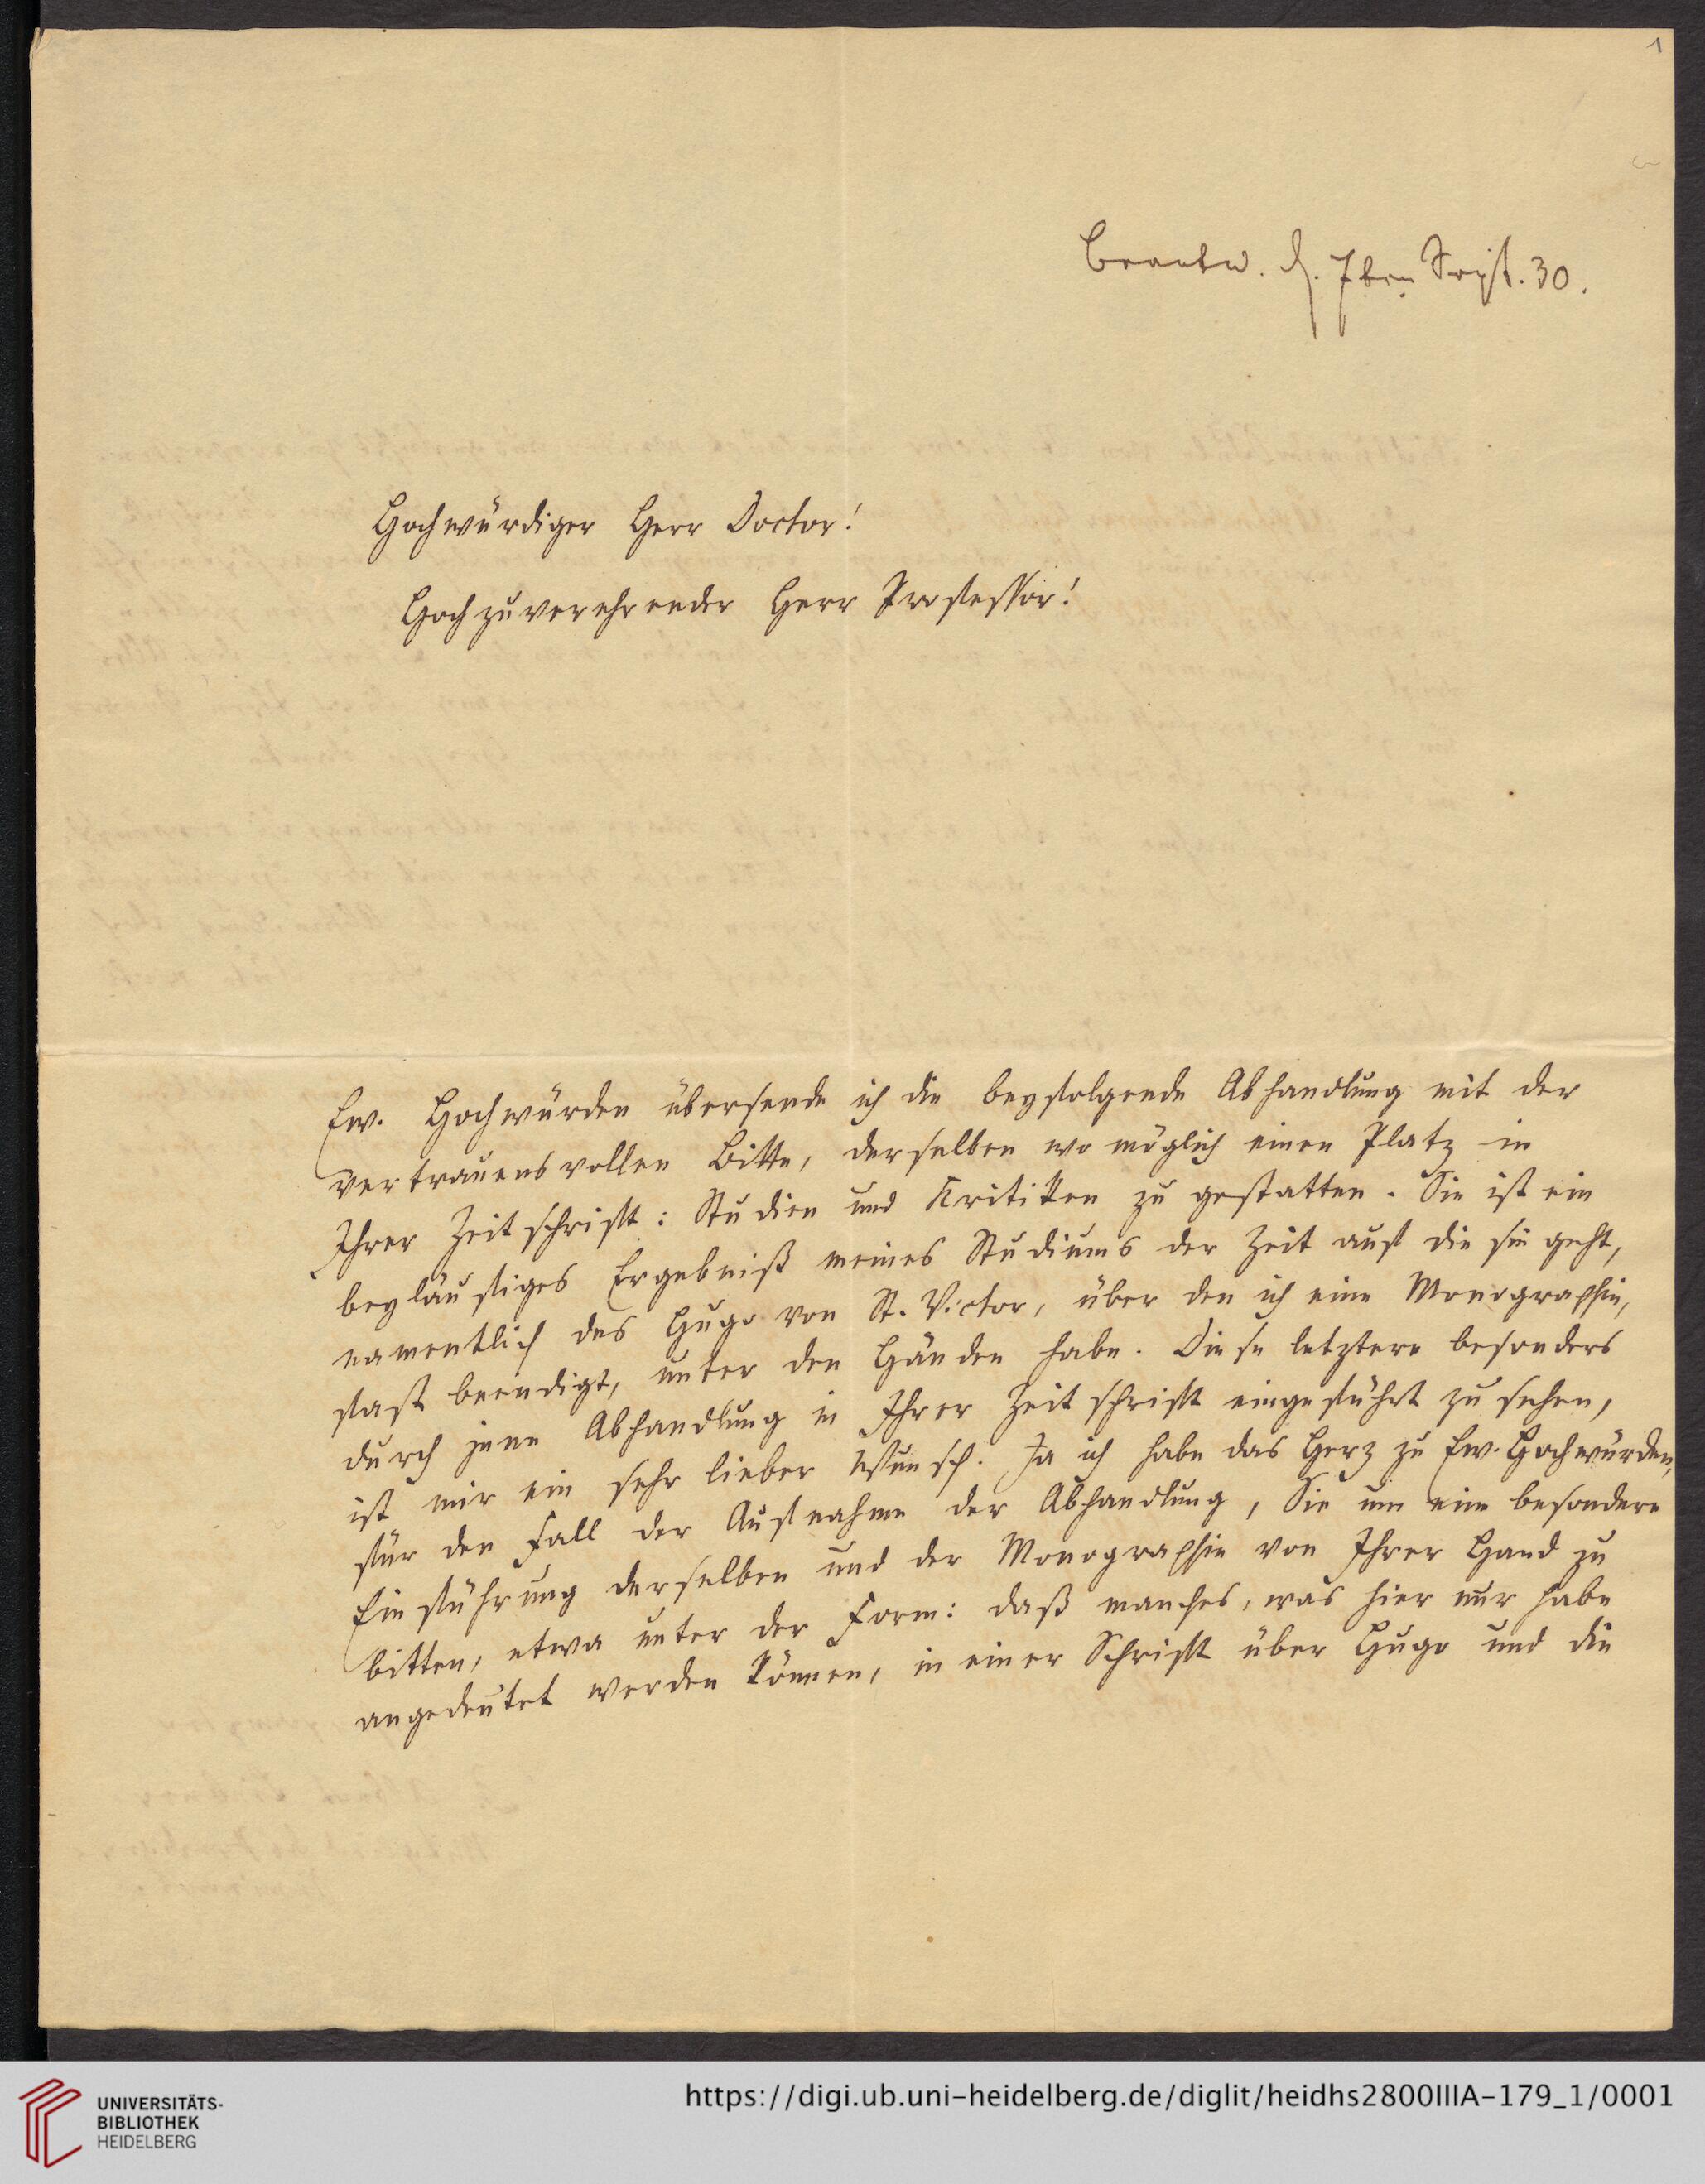 1
Beantw. d. 7ten Sept. 30.
Hochwürdiger Herr Doctor!
Hochzuverehrender Herr Professor!
Ew. Hochwürden übersende ich die beyfolgende Abhandlung mit der
vertrauensvollen Bitte, derselben wo möglich einen Platz in
Ihrer Zeitschrift: Studien und Kritiken zu gestatten. Sie ist ein
beyläufiges Ergebniß meines Studiums der Zeit auf die sie geht,
namentlich des Hugo von St. Victor, über den ich eine Monographie,
fast beendigt, unter den Händen habe. Diese letztere besonders
durch jene Abhandlung in Ihrer Zeitschrift eingeführt zu sehen,
ist mir ein sehr lieber Wunsch. Ja ich habe das Herz zu Ew. Hochwürden,
für den Fall der Aufnahme der Abhandlung, Sie um eine besondere
Einführung derselben und der Monographie von Ihrer Hand zu
bitten, etwa unter der Form: daß manches, was hier nur habe
angedeutet werden können, in einer Schrift über Hugo und die
UNIVERSITÄTS-
BIBLIOTHEK
HEIDELBERG
https://digi.ub.uni-heidelberg.de/diglit/heidhs2800IIIA-179_1/0001